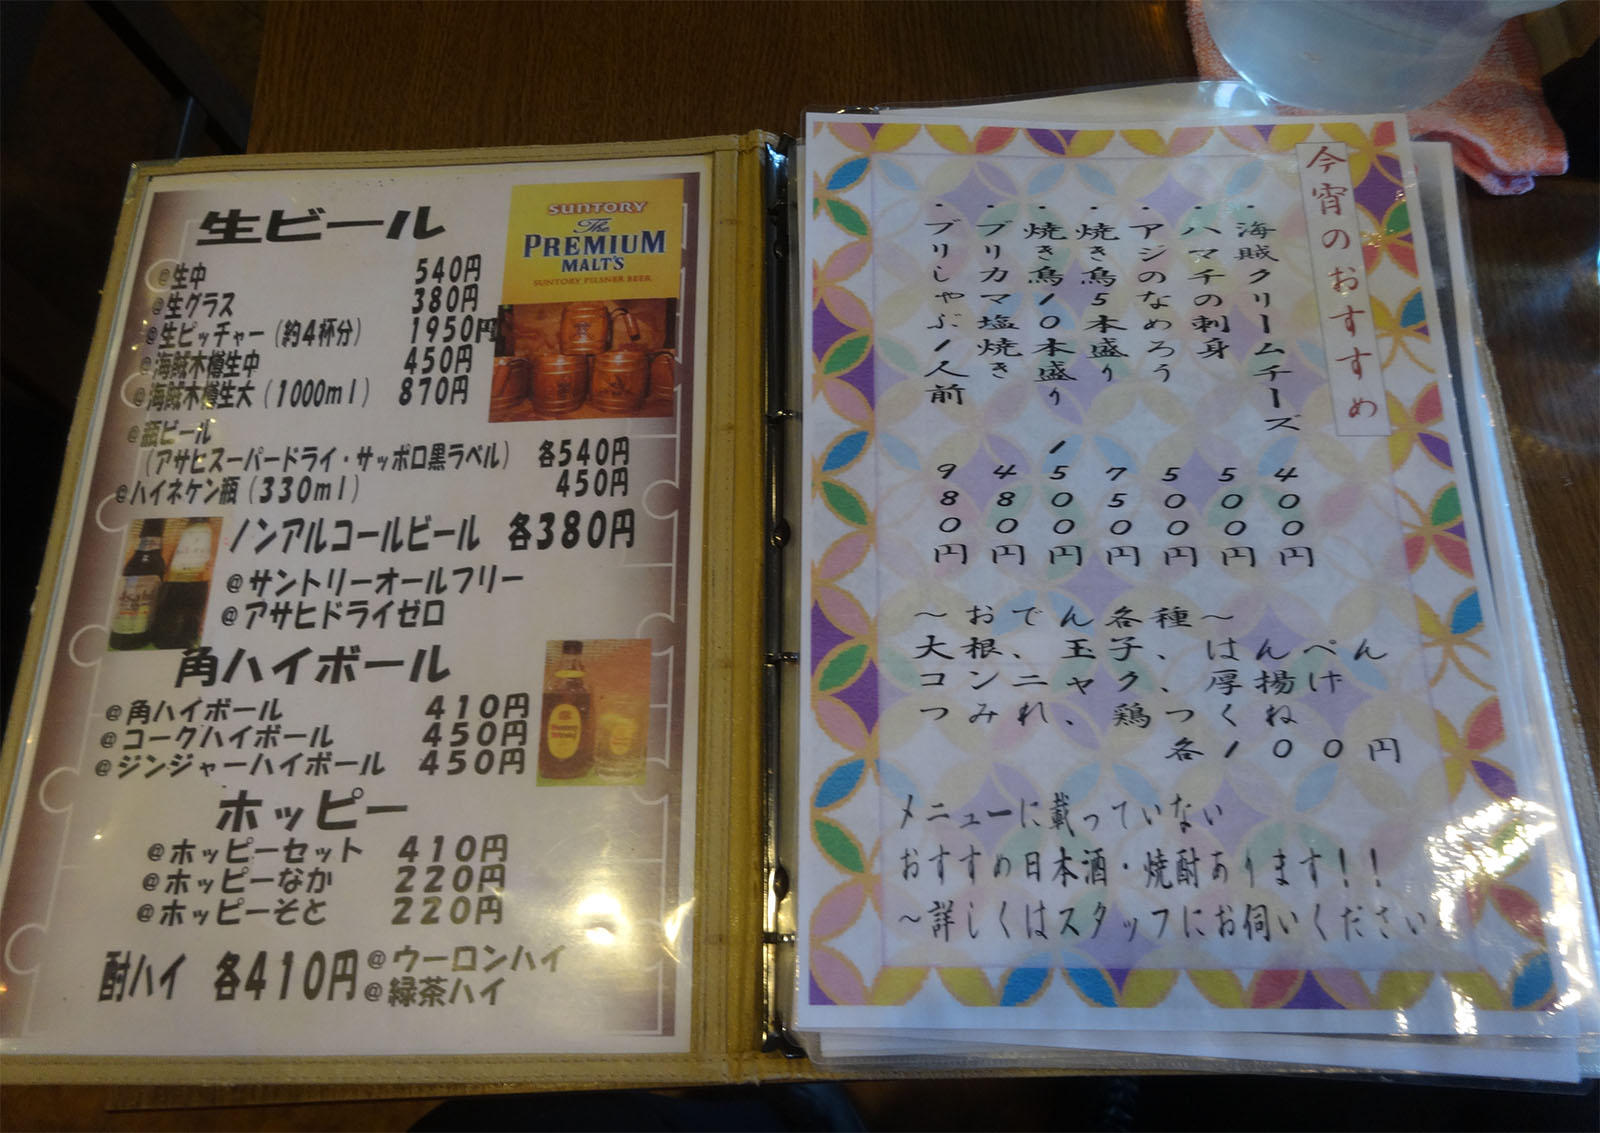 生ビール
SUNTORY
The
PREMIUM
MALT'S
SUNTORY PILSNER BEER
@生中 540円
@生グラス 380円
@生ピッチャー(約4杯分) 1950円
@海賊木樽生中 450円
@海賊木樽生大(1000ml) 870円
@瓶ビール
(アサヒスーパードライ・サッポロ黒ラベル) 各540円
@ハイネケン瓶(330ml) 450円
ノンアルコールビール 各380円
@サントリーオールフリー
@アサヒドライゼロ
角ハイボール
@角ハイボール 410円
@コークハイボール 450円
@ジンジャーハイボール 450円
ホッピー
@ホッピーセット 410円
@ホッピーなか 220円
@ホッピーそと 220円
酎ハイ 各410円 @ウーロンハイ
@緑茶ハイ
今宵のおすすめ
・海賊クリームチーズ 400円
・ハマチの刺身 500円
・アジのなめろう 500円
・焼き鳥5本盛り 750円
・焼き鳥10本盛り 1500円
・ブリカマ塩焼き 480円
・ブリしゃぶ1人前 980円
～おでん各種～
大根、玉子、はんぺん
コンニャク、厚揚げ
つみれ、鶏つくね
各100円
メニューに載っていない
おすすめ日本酒・焼酎あります!!
～詳しくはスタッフにお伺いください